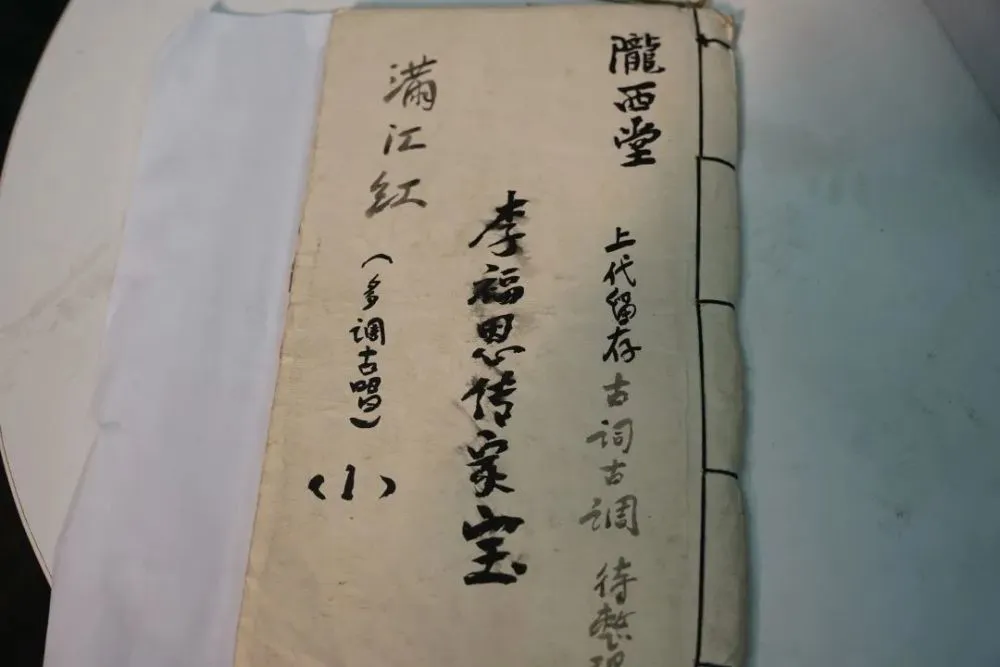 隴西堂
上代留存古词古调 待整理
李福思传家宝
满江红
(多调古唱)
<1>